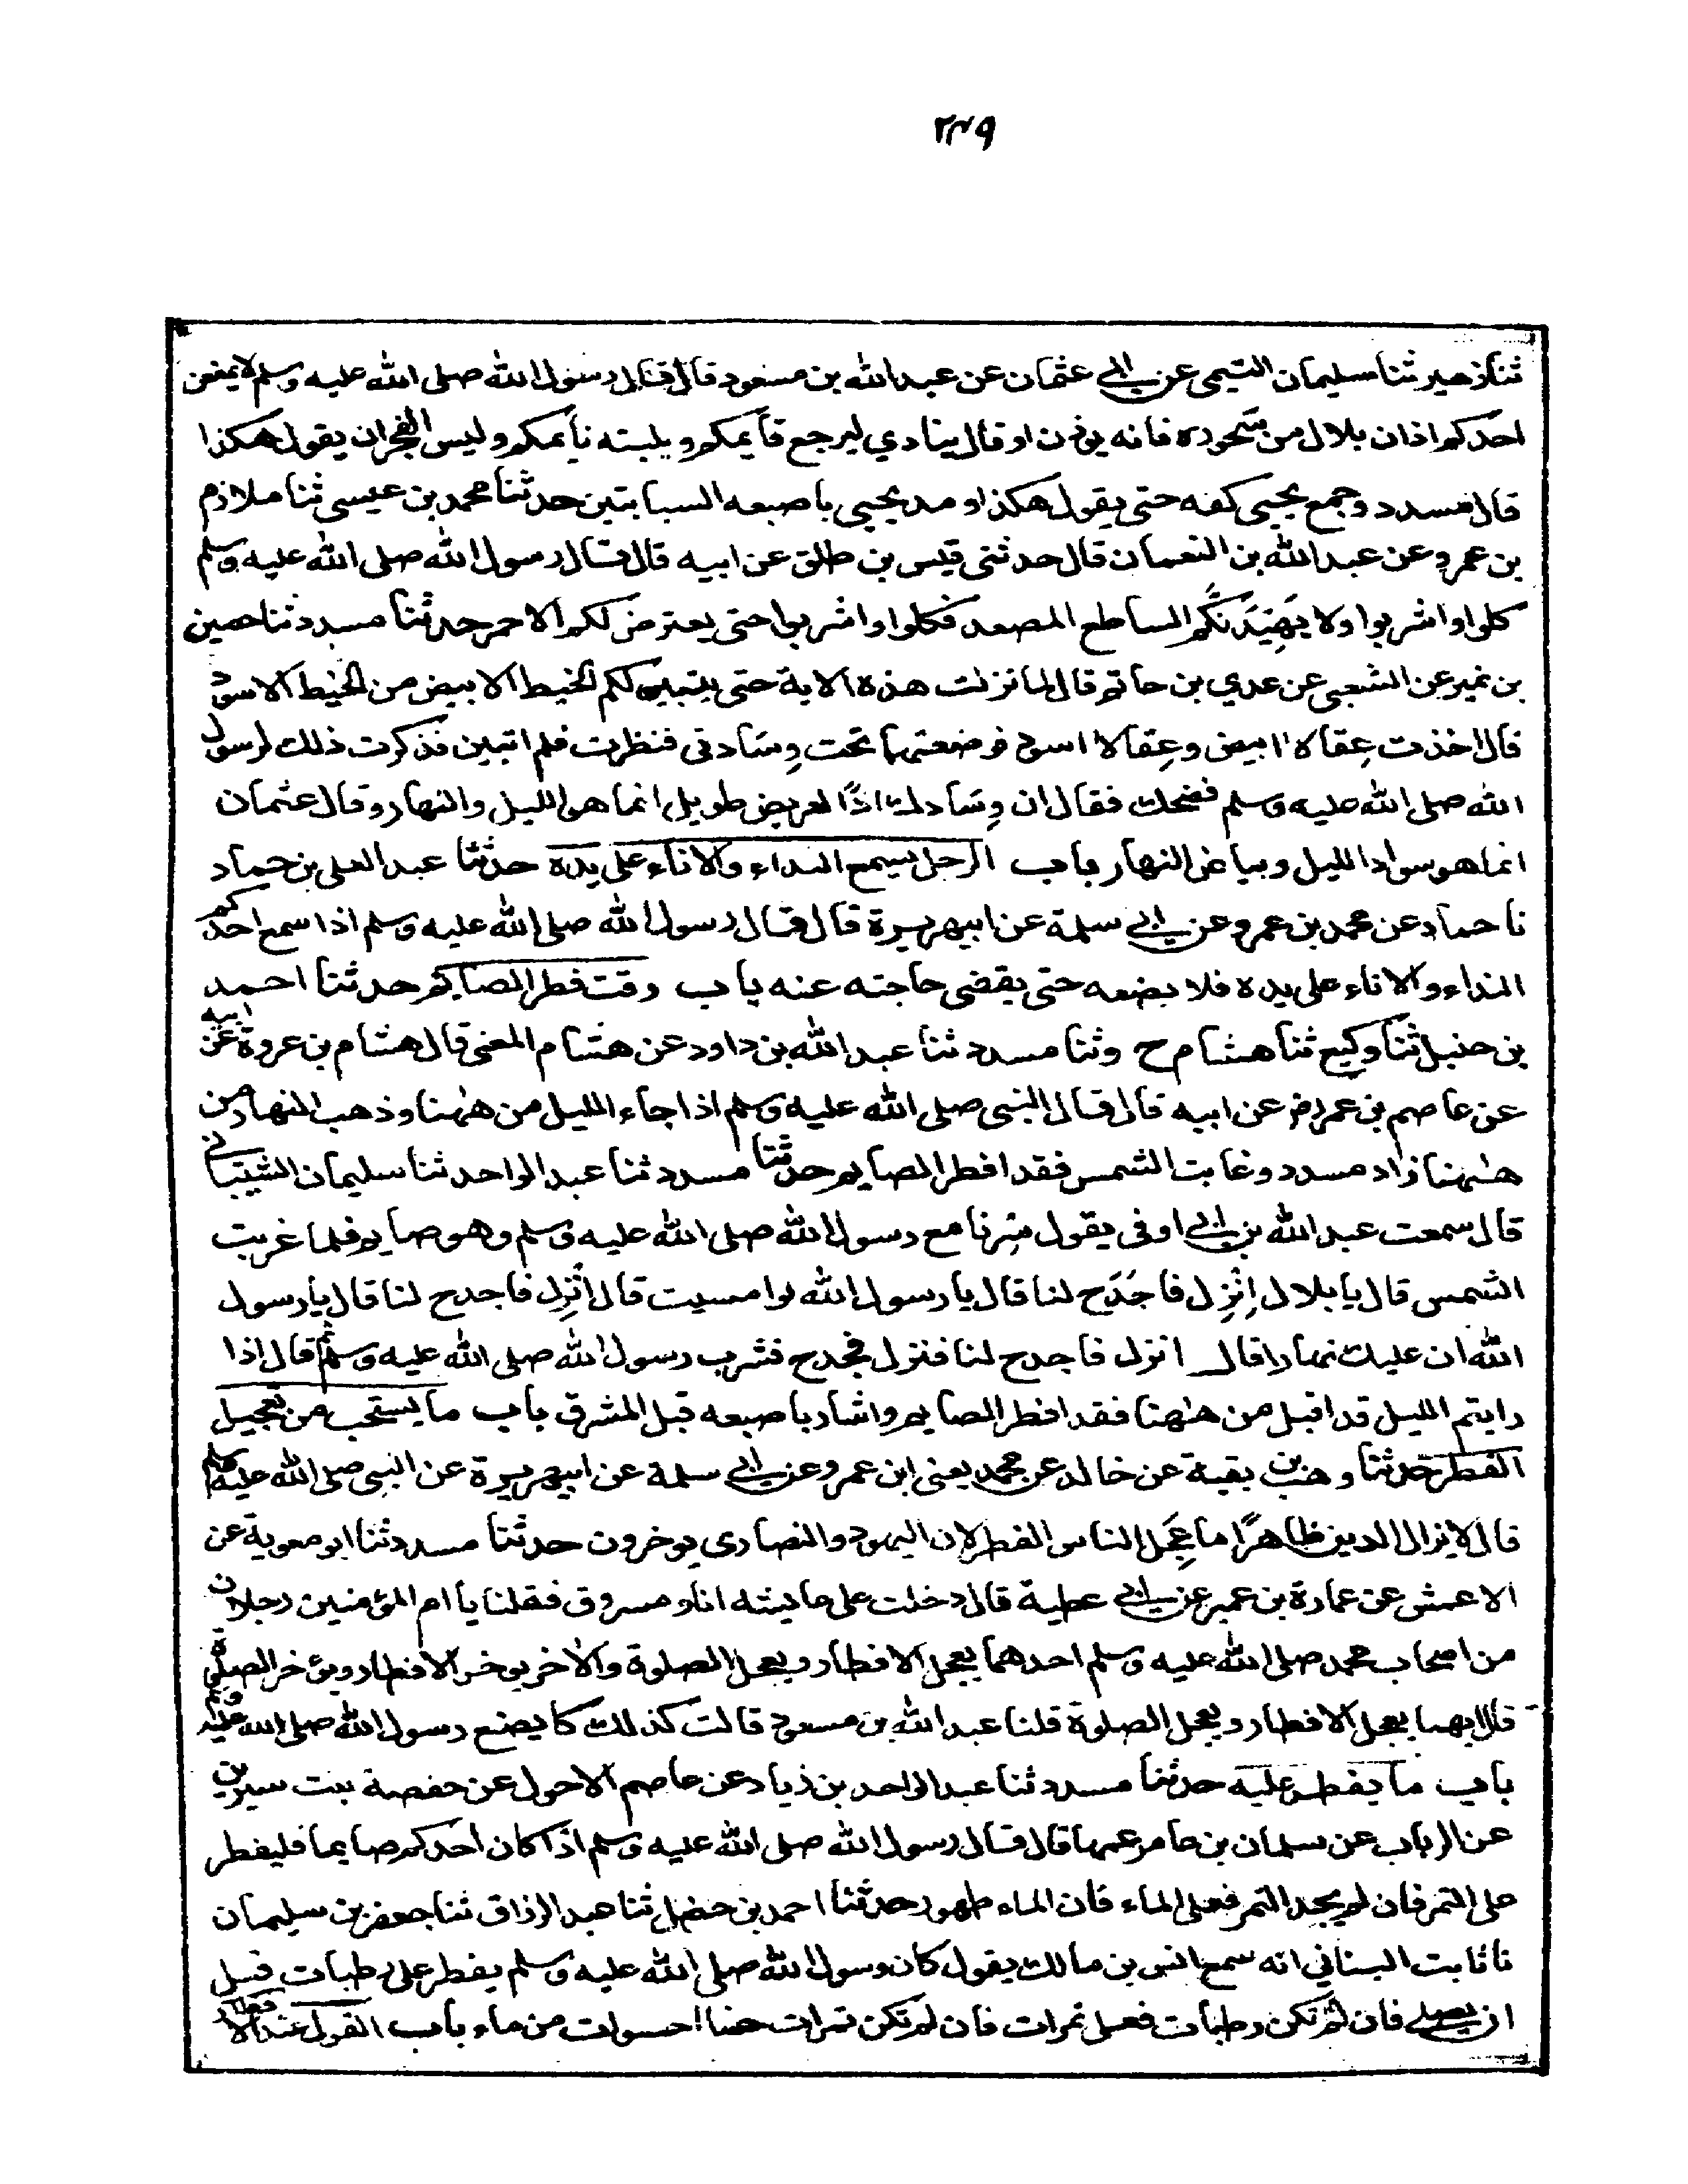 ٢٣٩
ثنا زهير ثنا سليمان التيمى عن ابي عثمان عن عبد الله بن مسعود قال قال رسول الله صلى الله عليه وسلم لا يمنعن
احدكم اذان بلال من سحوره فانه يؤذن او قال ينادي ليرجع قأيمكم و ينبته نأيمكم و ليس الفجر ان يقول هكذا
قال مسدد وجمع يحيى كفه حتى يقول هكذا و مد يحيى باصبعه السبابتين حدثنا محمد بن عيسى ثنا ملازم
بن عمرو عن عبد الله بن النعمان قال حدثنى قيس بن طلق عن ابيه قال قال رسول الله صلى الله عليه وسلم
كلوا و اشربوا ولا يَهِيْدَنَّكُم الساطع المصعد فكلوا و اشربوا حتى يعترض لكم الاحمر حدثنا مسدد ثنا حصين
بن نمير عن الشعبى عن عدي بن حاتم قال لما نزلت هذه الاية حتى يتبين لكم الخيط الابيض من الخيط الاسود
قال اخذت عِقالا ابيض وعِقالا اسود فوضعتهما تحت وِسَادتى فنظرت فلم اتبين فذكرت ذلك لرسول
الله صلى الله عليه وسلم فضحك فقال ان وِسَادك اذًا لعريض طويل انما هو الليل والنهار وقال عثمان
انما هو سواد الليل وبياض النهار باب الرجل يسمع النداء والاناء على يده حدثنا عبد الاعلى بن حماد
نا حماد عن محمد بن عمرو عن ابي سلمة عن ابيهريرة قال قال رسول الله صلى الله عليه وسلم اذا سمع احدكم
النداء والاناء على يده فلا يضعه حتى يقضى حاجته عنه باب وقت فطر الصايم حدثنا احمد
بن حنبل ثنا وكيع ثنا هشام ح وثنا مسدد ثنا عبد الله بن داود عن هشام المعنى قال هشام بن عروة عن ابيه
عن عاصم بن عمر رض عن ابيه قال قال النبى صلى الله عليه وسلم اذا جاء الليل من ههنا وذهب النهار من
ههنا زاد مسدد وغابت الشمس فقد افطر الصايم حدثنا مسدد ثنا عبد الواحد ثنا سليمان الشيبانى
قال سمعت عبد الله بن ابي اوفى يقول سِرنا مع رسول الله صلى الله عليه وسلم وهو صايم فلما غربت
الشمس قال يا بلال اِنْزِل فاجْدَح لنا قال يا رسول الله لو امسيت قال اِنْزِل فاجدح لنا قال يا رسول
الله ان عليك نهارا قال انزل فاجدح لنا فنزل فجدح فشرب رسول الله صلى الله عليه وسلم ثم قال اذا
رايتم الليل قد اقبل من ههنا فقد افطر الصايم واشار باصبعه قبل المشرق باب ما يستحب من تعجيل
الفطر حدثنا وهب بن بقية عن خالد عن محمد يعنى ابن عمرو عن ابي سلمة عن ابيهريرة عن النبى صلى الله عليه وسلم
قال لا يزال الدين ظاهرًا ما عَجَّل الناس الفطر لان اليهود والنصارى يوخرون حدثنا مسدد ثنا ابو معوية عن
الاعمش عن عمارة بن عمير عن ابي عطية قال دخلت على عايشه انا و مسروق فقلنا يا ام المؤمنين رجلان
من اصحاب محمد صلى الله عليه وسلم احدهما يعجل الافطار ويعجل الصلوة والاخر يوخر الافطار ويؤخر الصلوة
قال ايهما يعجل الافطار ويعجل الصلوة قلنا عبد الله بن مسعود قالت كذلك كا يصنع رسول الله صلى الله عليه وسلم
باب ما يفطر عليه حدثنا مسدد ثنا عبد الواحد بن زياد عن عاصم الاحول عن حفصة بنت سيرين
عن الرباب عن سلمان بن عامر عمها قال قال رسول الله صلى الله عليه وسلم اذا كان احدكم صايما فليفطر
على التمر فان لم يجد التمر فعلى الماء فان الماء طهور حدثنا احمد بن حنبل ثنا عبد الرزاق ثنا جعفر بن سليمان
نا ثابت البناني انه سمع انس بن مالك يقول كان رسول الله صلى الله عليه وسلم يفطر على رطبات قبل
ان يصلى فان لم تكن رطبات فعلى تمرات فان لم تكن تمرات حسا حسوات من ماء باب القول عند الافطار